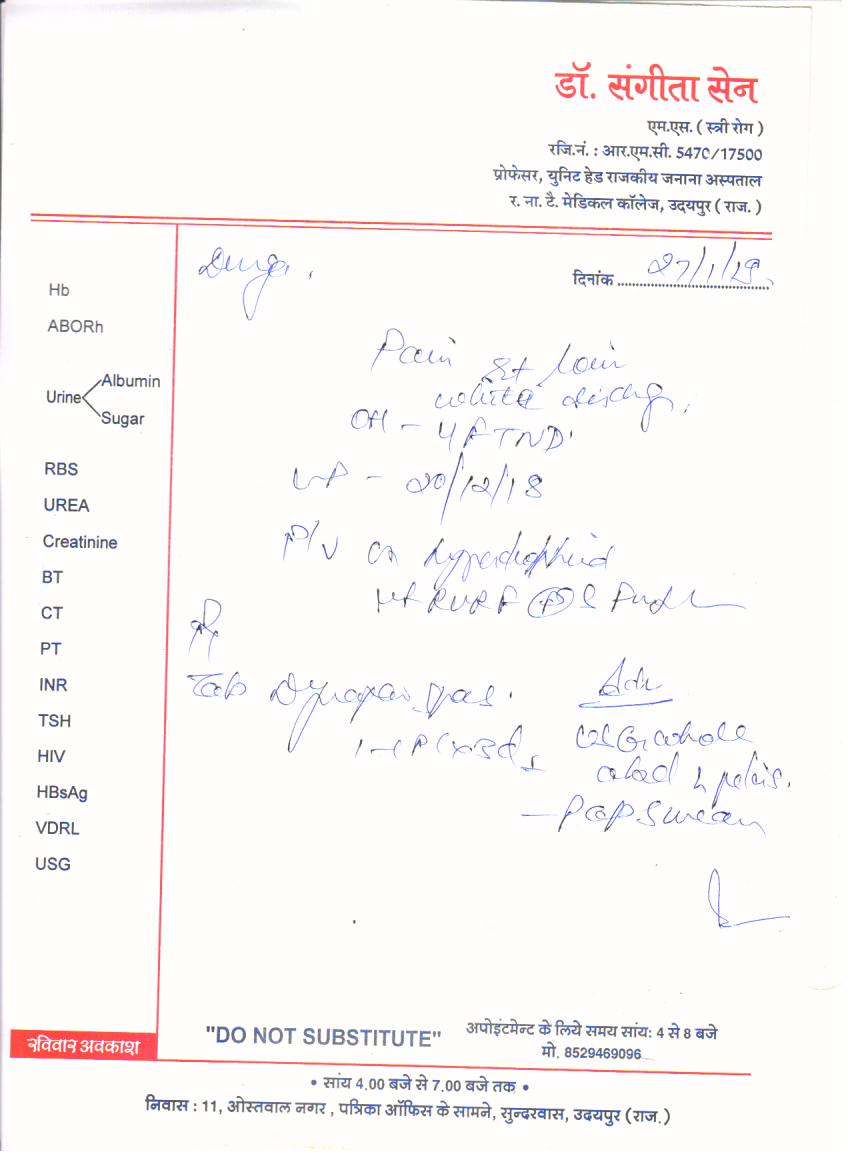 डॉ. संगीता सेन
एम.एस. ( स्त्री रोग )
रजि.नं. : आर.एम.सी. 5470/17500
प्रोफेसर, युनिट हेड राजकीय जनाना अस्पताल
र. ना. टै. मेडिकल कॉलेज, उदयपुर ( राज. )
दिनांक 27/1/19
Hb
ABORh
Urine
Albumin
Sugar
RBS
UREA
Creatinine
BT
CT
PT
INR
TSH
HIV
HBsAg
VDRL
USG
Pain
white
OH - 4 FTND
LMP - 20/12/18
P/V Cx
Rx
Tab
Adv
USG whole
abd & pelvis.
- PAP smear
रविवार अवकाश
"DO NOT SUBSTITUTE"
अपोइंटमेन्ट के लिये समय सांय: 4 से 8 बजे
मो. 8529469096
• सांय 4.00 बजे से 7.00 बजे तक •
निवास : 11, ओस्तवाल नगर , पत्रिका ऑफिस के सामने, सुन्दरवास, उदयपुर (राज.)